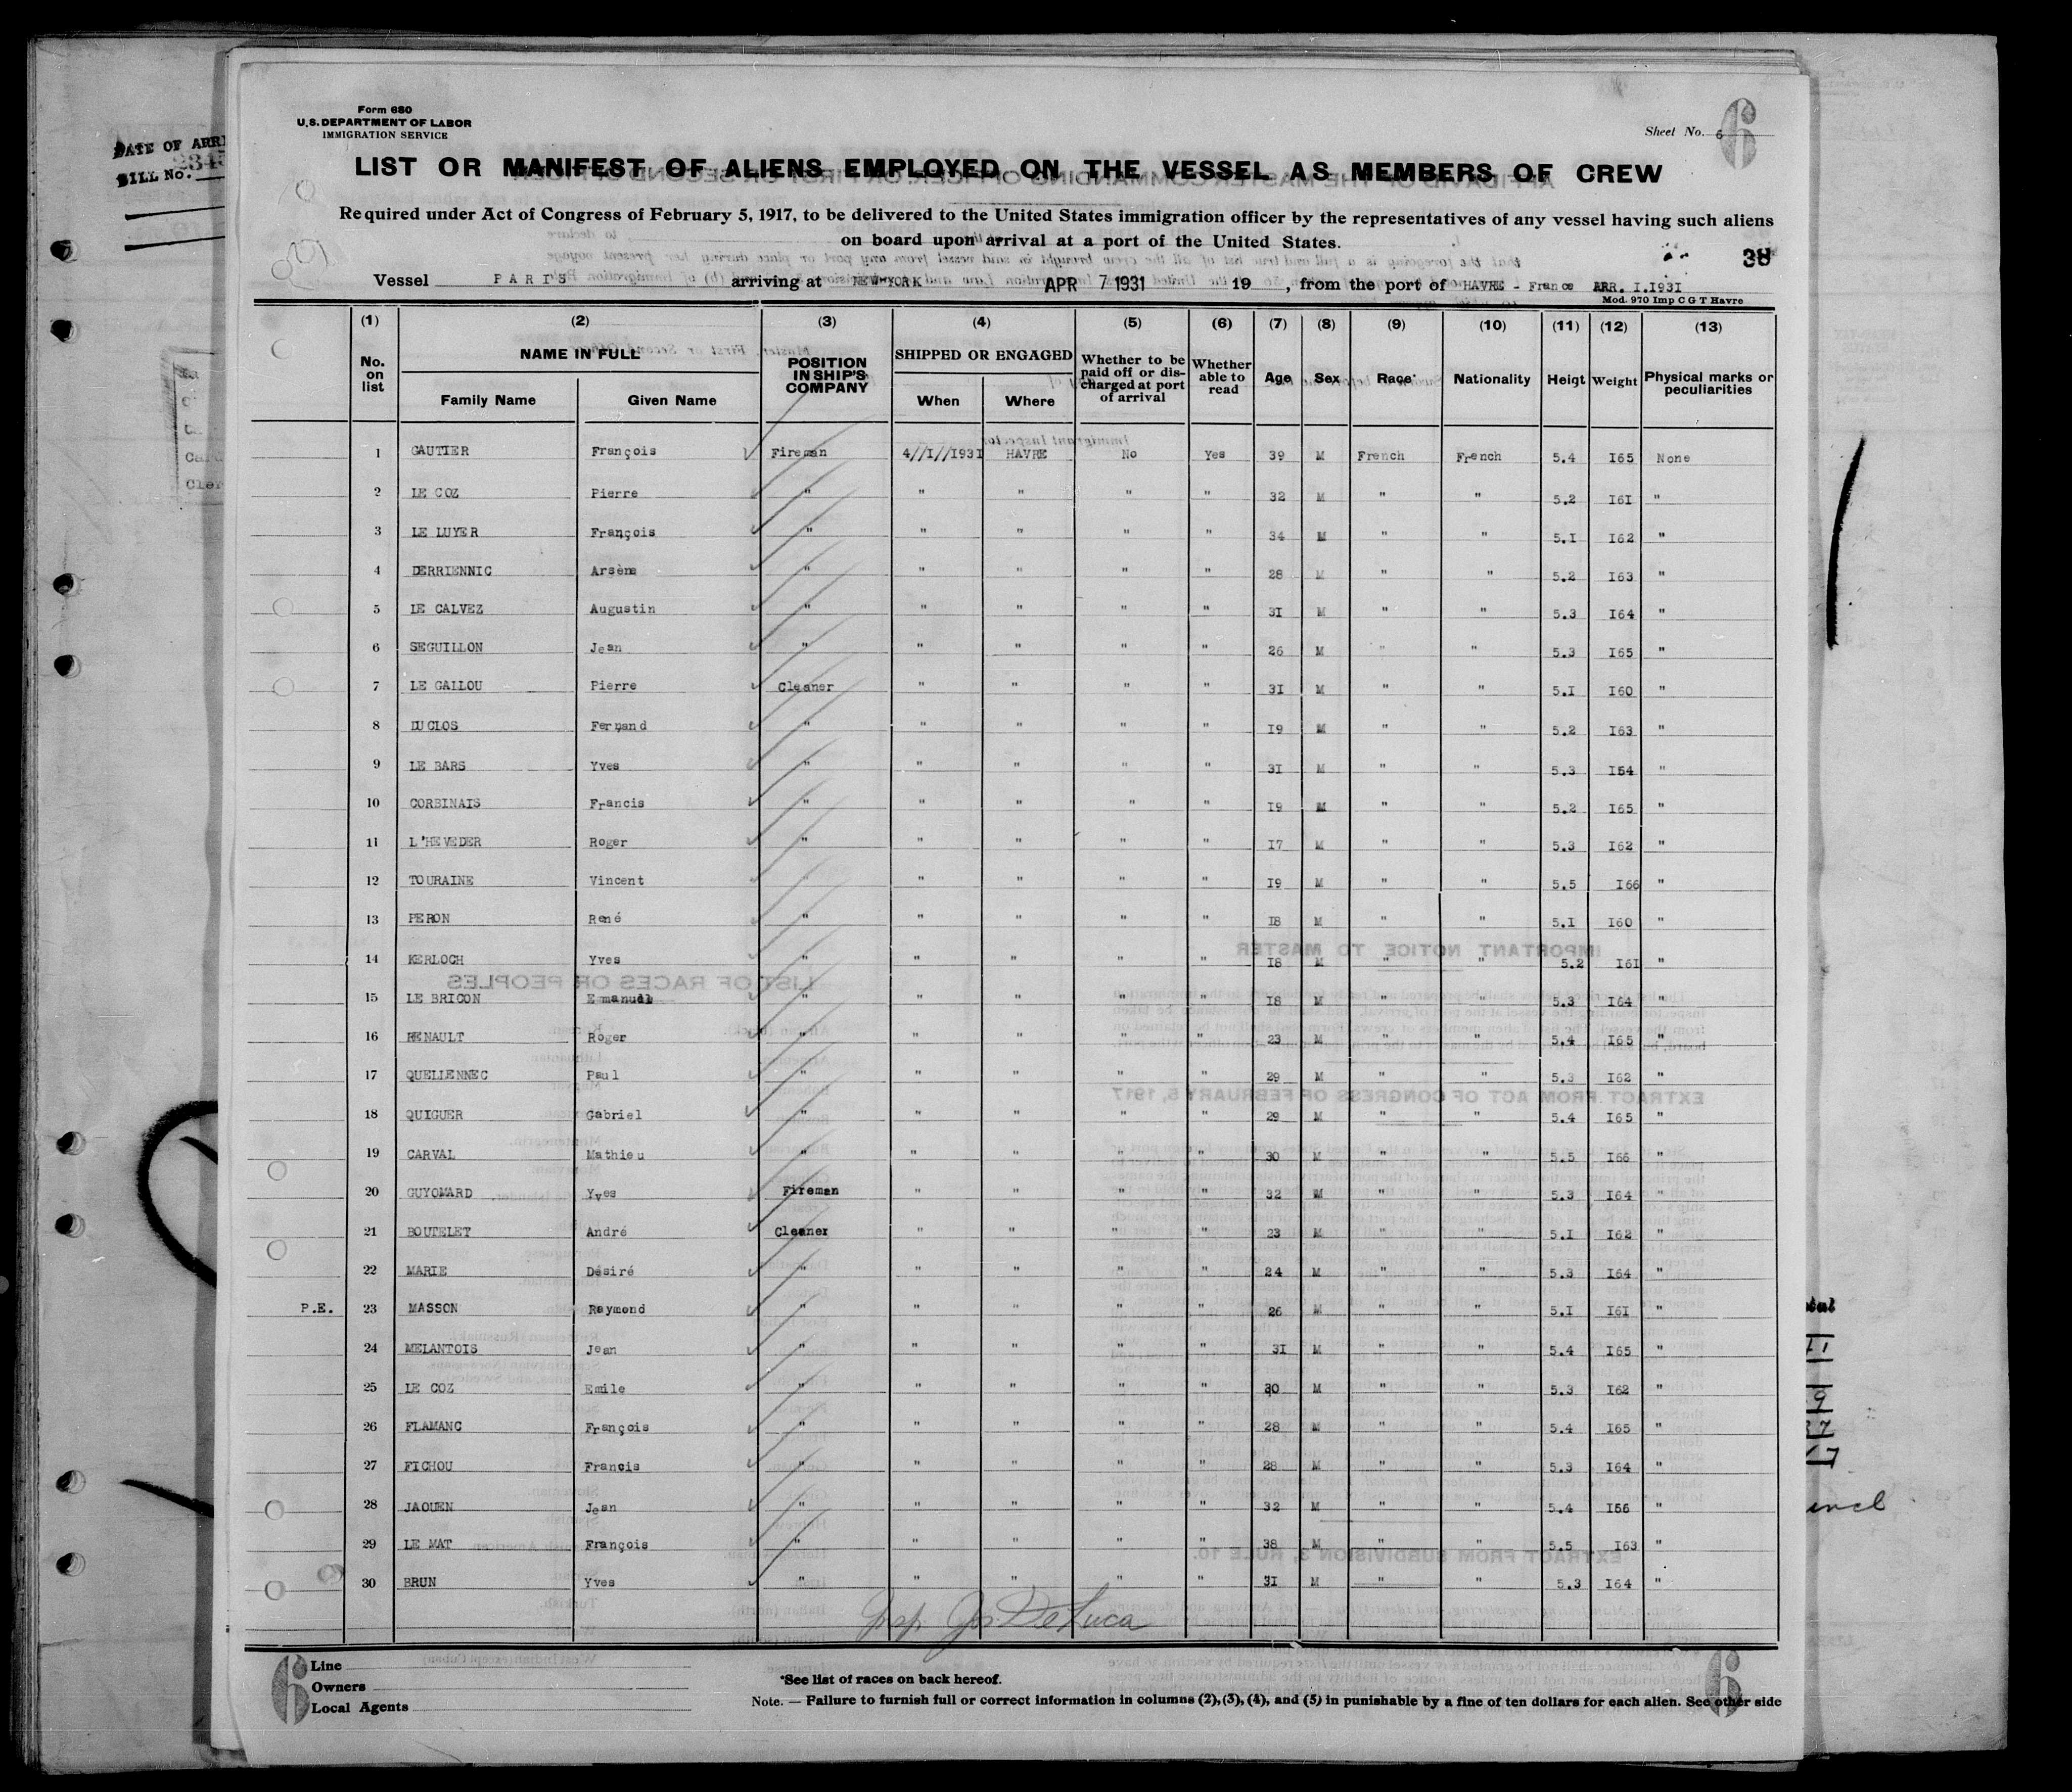 Form 680
U.S. DEPARTMENT OF LABOR
IMMIGRATION SERVICE
Sheet No. 6
6
DATE OF ARRI
BILL No.
LIST OR MANIFEST OF ALIENS EMPLOYED ON THE VESSEL AS MEMBERS OF CREW
Required under Act of Congress of February 5, 1917, to be delivered to the United States immigration officer by the representatives of any vessel having such aliens
on board upon arrival at a port of the United States.
38
Vessel PARIS arriving at NEW-YORK APR 7 1931 19 , from the port of HAVRE - France ARR. I.I93I
Mod. 970 Imp C G T Havre
(1) (2) (3) (4) (5) (6) (7) (8) (9) (10) (11) (12) (13)
No. on list NAME IN FULL Family Name Given Name POSITION IN SHIP'S COMPANY SHIPPED OR ENGAGED When Where Whether to be paid off or discharged at port of arrival Whether able to read Age Sex Race* Nationality Heigt Weight Physical marks or peculiarities
1 GAUTIER François Fireman 4//I//I93I HAVRE No Yes 39 M French French 5.4 I65 None
2 LE COZ Pierre " " " " " 32 M " " 5.2 I6I "
3 LE LUYER François " " " " " 34 M " " 5.I I62 "
4 DERRIENNIC Arsèm " " " " " 28 M " " 5.2 I63 "
5 LE CALVEZ Augustin " " " " " 3I M " " 5.3 I64 "
6 SEGUILLON Jean " " " " " 26 M " " 5.3 I65 "
7 LE GALLOU Pierre Cleaner " " " " 3I M " " 5.I I60 "
8 DUCLOS Fernand " " " " " I9 M " " 5.2 I63 "
9 LE BARS Yves " " " " " 3I M " " 5.3 I54 "
10 CORBINAIS Francis " " " " " I9 M " " 5.2 I65 "
11 L'HEVEDER Roger " " " " " I7 M " " 5.3 I62 "
12 TOURAINE Vincent " " " " " I9 M " " 5.5 I66 "
13 PERON René " " " " " I8 M " " 5.I I60 "
14 KERLOCH Yves " " " " " I8 M " " 5.2 I6I "
15 LE BRICON Emanuel " " " " " I8 M " " 5.3 I64 "
16 RENAULT Roger " " " " " 23 M " " 5.4 I65 "
17 QUELLENNEC Paul " " " " " 29 M " " 5.3 I62 "
18 QUIGUER Gabriel " " " " " 29 M " " 5.4 I65 "
19 CARVAL Mathieu " " " " " 30 M " " 5.5 I66 "
20 GUYOMARD Yves Fireman " " " " 32 M " " 5.3 I64 "
21 BOUTELET André Cleaner " " " " 23 M " " 5.I I62 "
22 MARIE Désiré " " " " " 24 M " " 5.3 I64 "
P.E. 23 MASSON Raymond " " " " " 26 M " " 5.I I6I "
24 MELANTOIS Jean " " " " " 3I M " " 5.4 I65 "
25 LE COZ Emile " " " " " 30 M " " 5.3 I62 "
26 FLAMANC François " " " " " 28 M " " 5.4 I65 "
27 FICHOU Francis " " " " " 28 M " " 5.3 I64 "
28 JAOUEN Jean " " " " " 32 M " " 5.4 I66 "
29 LE MAT François " " " " " 38 M " " 5.5 I63 "
30 BRUN Yves " " " " " 3I M " " 5.3 I64 "
Insp. Jos DeLuca
6
6
Line
Owners
Local Agents
*See list of races on back hereof.
Note. — Failure to furnish full or correct information in columns (2),(3),(4), and (5) in punishable by a fine of ten dollars for each alien. See other side